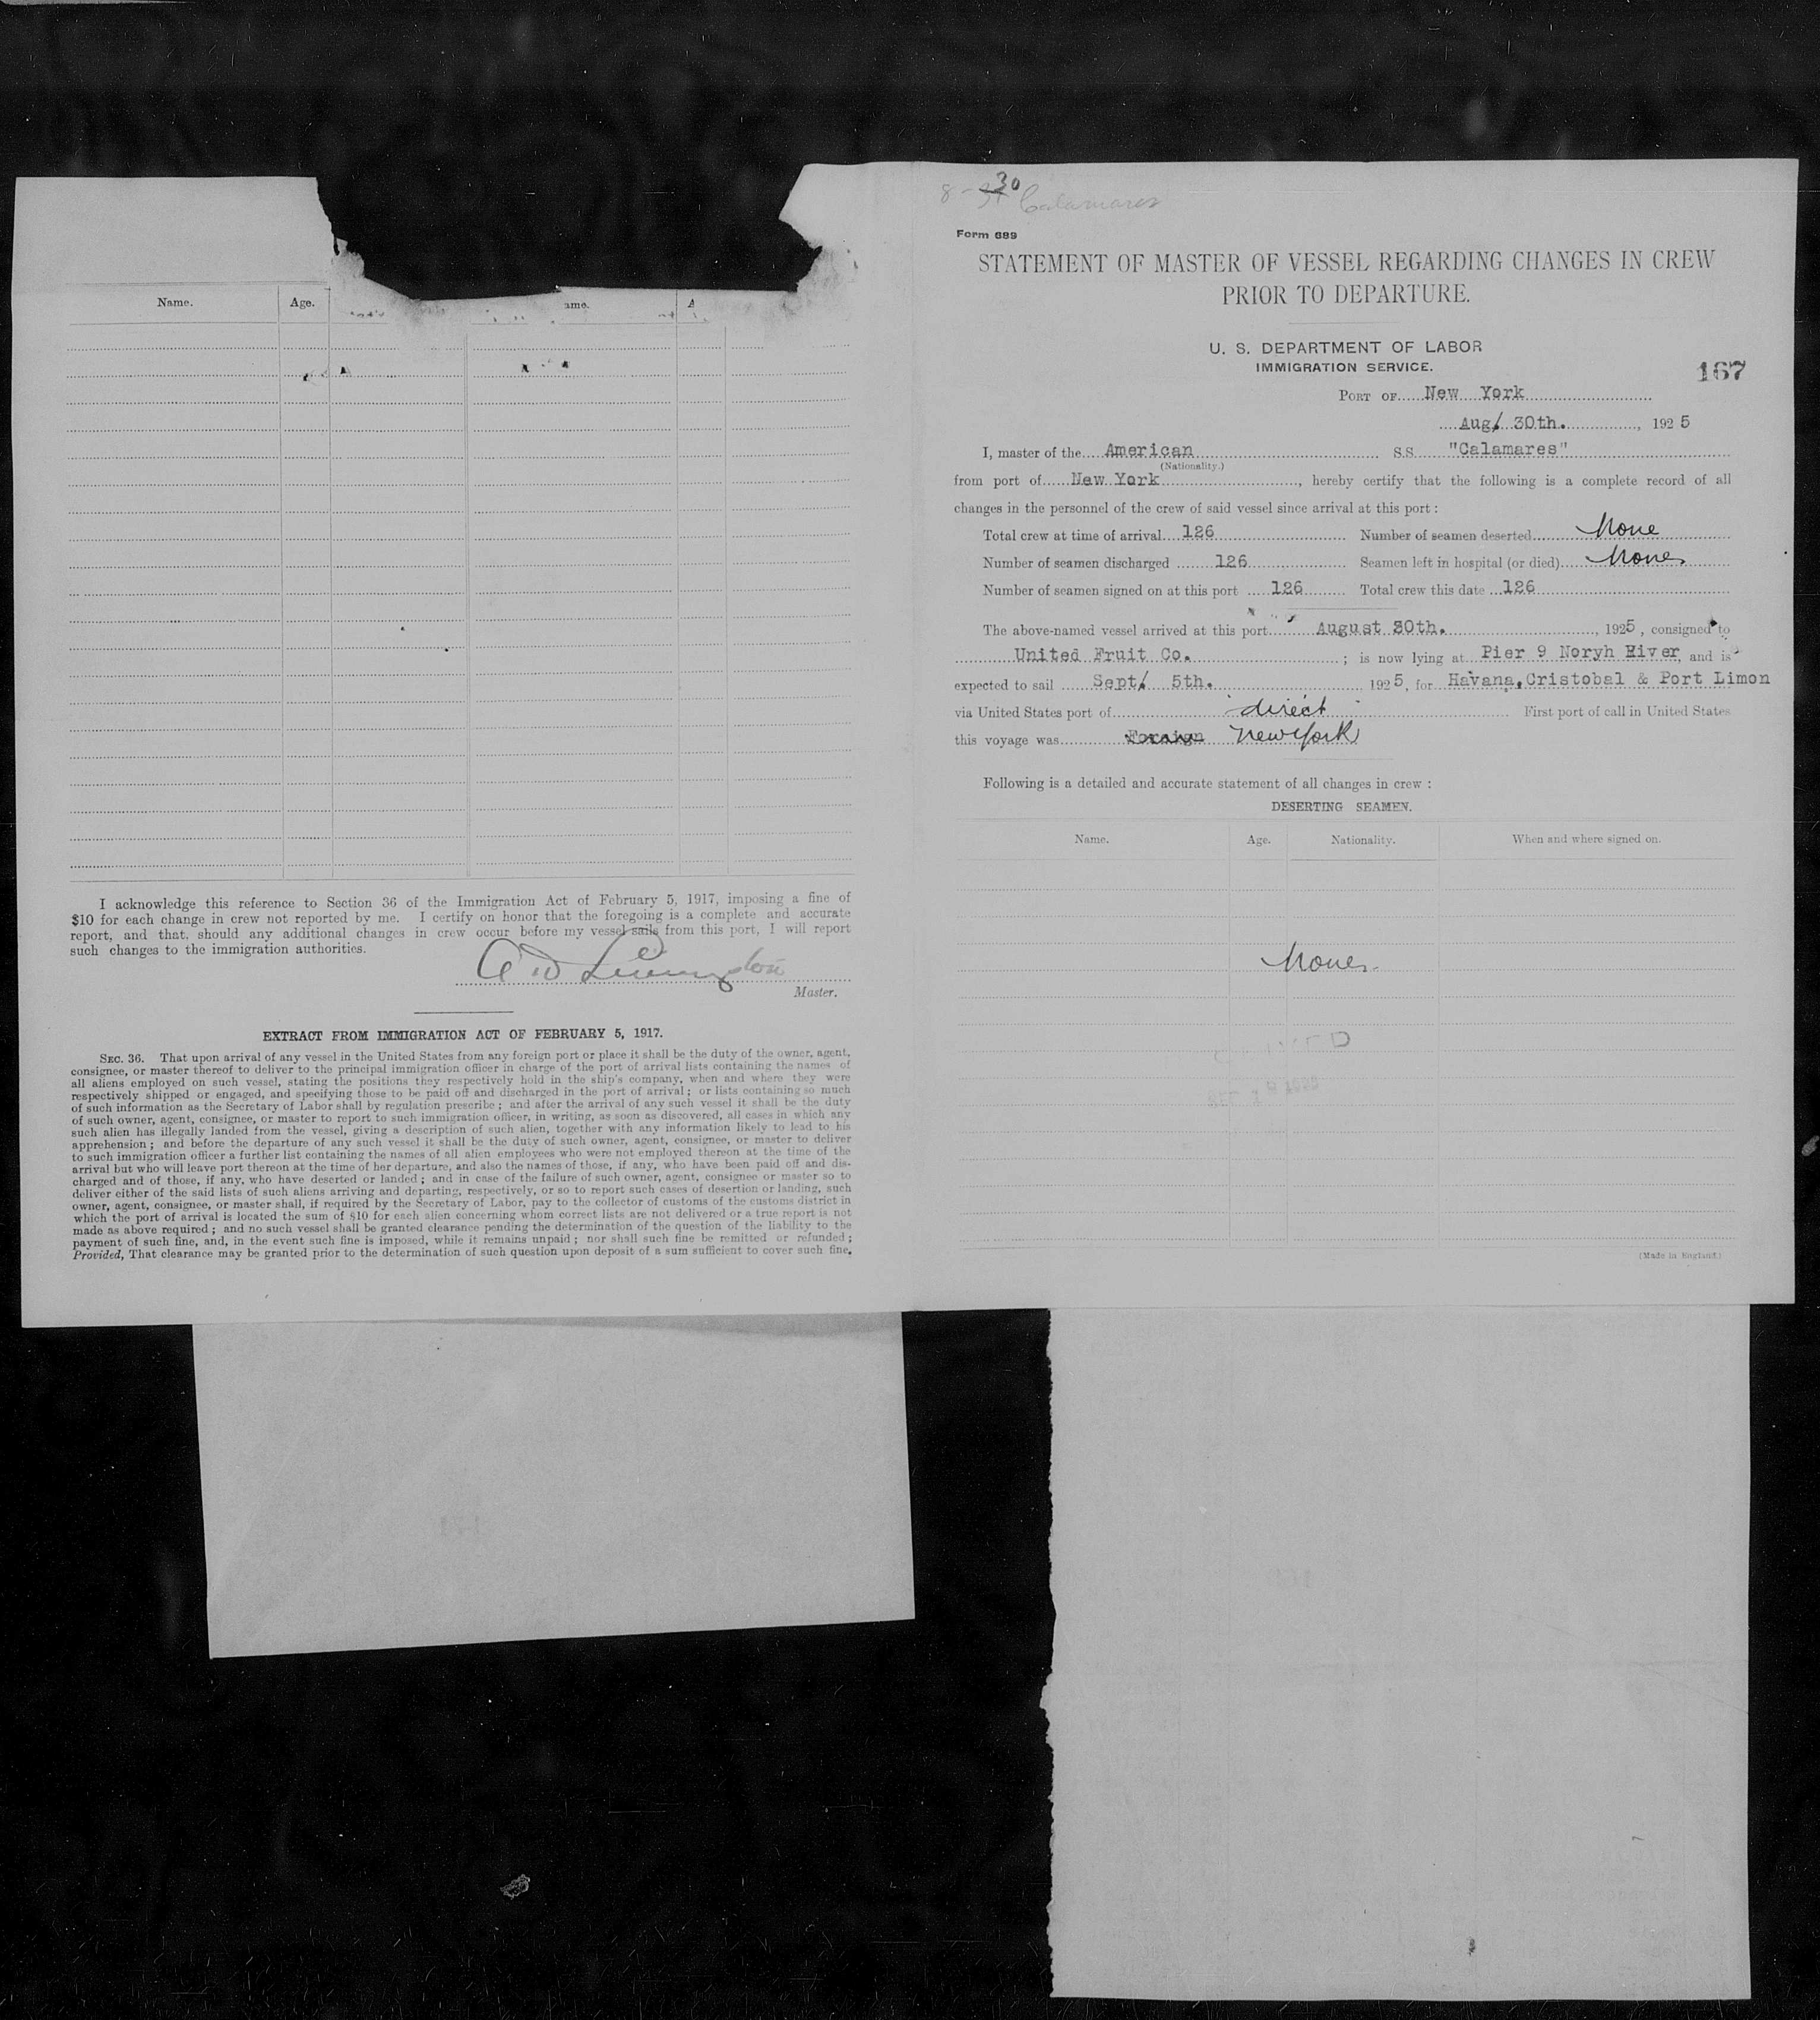 Name.
Age.
ame.
A
I acknowledge this reference to Section 36 of the Immigration Act of February 5, 1917, imposing a fine of
$10 for each change in crew not reported by me. I certify on honor that the foregoing is a complete and accurate
report, and that, should any additional changes in crew occur before my vessel sails from this port, I will report
such changes to the immigration authorities.
Master.
EXTRACT FROM IMMIGRATION ACT OF FEBRUARY 5, 1917.
SEC. 36. That upon arrival of any vessel in the United States from any foreign port or place it shall be the duty of the owner, agent,
consignee, or master thereof to deliver to the principal immigration officer in charge of the port of arrival lists containing the names of
all aliens employed on such vessel, stating the positions they respectively hold in the ship's company, when and where they were
respectively shipped or engaged, and specifying those to be paid off and discharged in the port of arrival; or lists containing so much
of such information as the Secretary of Labor shall by regulation prescribe; and after the arrival of any such vessel it shall be the duty
of such owner, agent, consignee, or master to report to such immigration officer, in writing, as soon as discovered, all cases in which any
such alien has illegally landed from the vessel, giving a description of such alien, together with any information likely to lead to his
apprehension; and before the departure of any such vessel it shall be the duty of such owner, agent, consignee, or master to deliver
to such immigration officer a further list containing the names of all alien employees who were not employed thereon at the time of the
arrival but who will leave port thereon at the time of her departure, and also the names of those, if any, who have been paid off and dis-
charged and of those, if any, who have deserted or landed; and in case of the failure of such owner, agent, consignee or master so to
deliver either of the said lists of such aliens arriving and departing, respectively, or so to report such cases of desertion or landing, such
owner, agent, consignee, or master shall, if required by the Secretary of Labor, pay to the collector of customs of the customs district in
which the port of arrival is located the sum of $10 for each alien concerning whom correct lists are not delivered or a true report is not
made as above required; and no such vessel shall be granted clearance pending the determination of the question of the liability to the
payment of such fine, and, in the event such fine is imposed, while it remains unpaid; nor shall such fine be remitted or refunded;
Provided, That clearance may be granted prior to the determination of such question upon deposit of a sum sufficient to cover such fine.
8 - 30 Calamares
Form 689
STATEMENT OF MASTER OF VESSEL REGARDING CHANGES IN CREW
PRIOR TO DEPARTURE.
U. S. DEPARTMENT OF LABOR
IMMIGRATION SERVICE.
167
PORT OF New York
Aug/ 30th. , 1925
I, master of the American S.S. "Calamares"
(Nationality.)
from port of New York , hereby certify that the following is a complete record of all
changes in the personnel of the crew of said vessel since arrival at this port:
Total crew at time of arrival 126 Number of seamen deserted None
Number of seamen discharged 126 Seamen left in hospital (or died) None
Number of seamen signed on at this port 126 Total crew this date 126
The above-named vessel arrived at this port August 30th. , 1925, consigned to
United Fruit Co. ; is now lying at Pier 9 Noryh River, and is
expected to sail Sept/ 5th. 1925, for Havana, Cristobal & Port Limon
via United States port of direct First port of call in United States
this voyage was Foreign New York
Following is a detailed and accurate statement of all changes in crew:
DESERTING SEAMEN.
Name. Age. Nationality. When and where signed on.
None
(Made in England.)